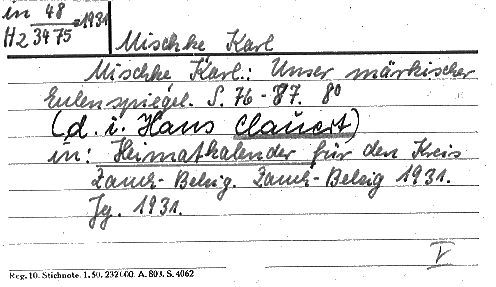 in 48 = 1931
Hz 3475
Mischke Karl
Mischke Karl.: Unser märkischer
Eulenspiegel. S. 76-87. 8°
(d. i. Hans Clauert)
in: Heimatkalender für den Kreis
Zauch-Belzig. Zauch-Belzig 1931.
Jg. 1931.
V
Reg. 10. Stichnote. 1. 50. 232000. A. 803. S. 4062